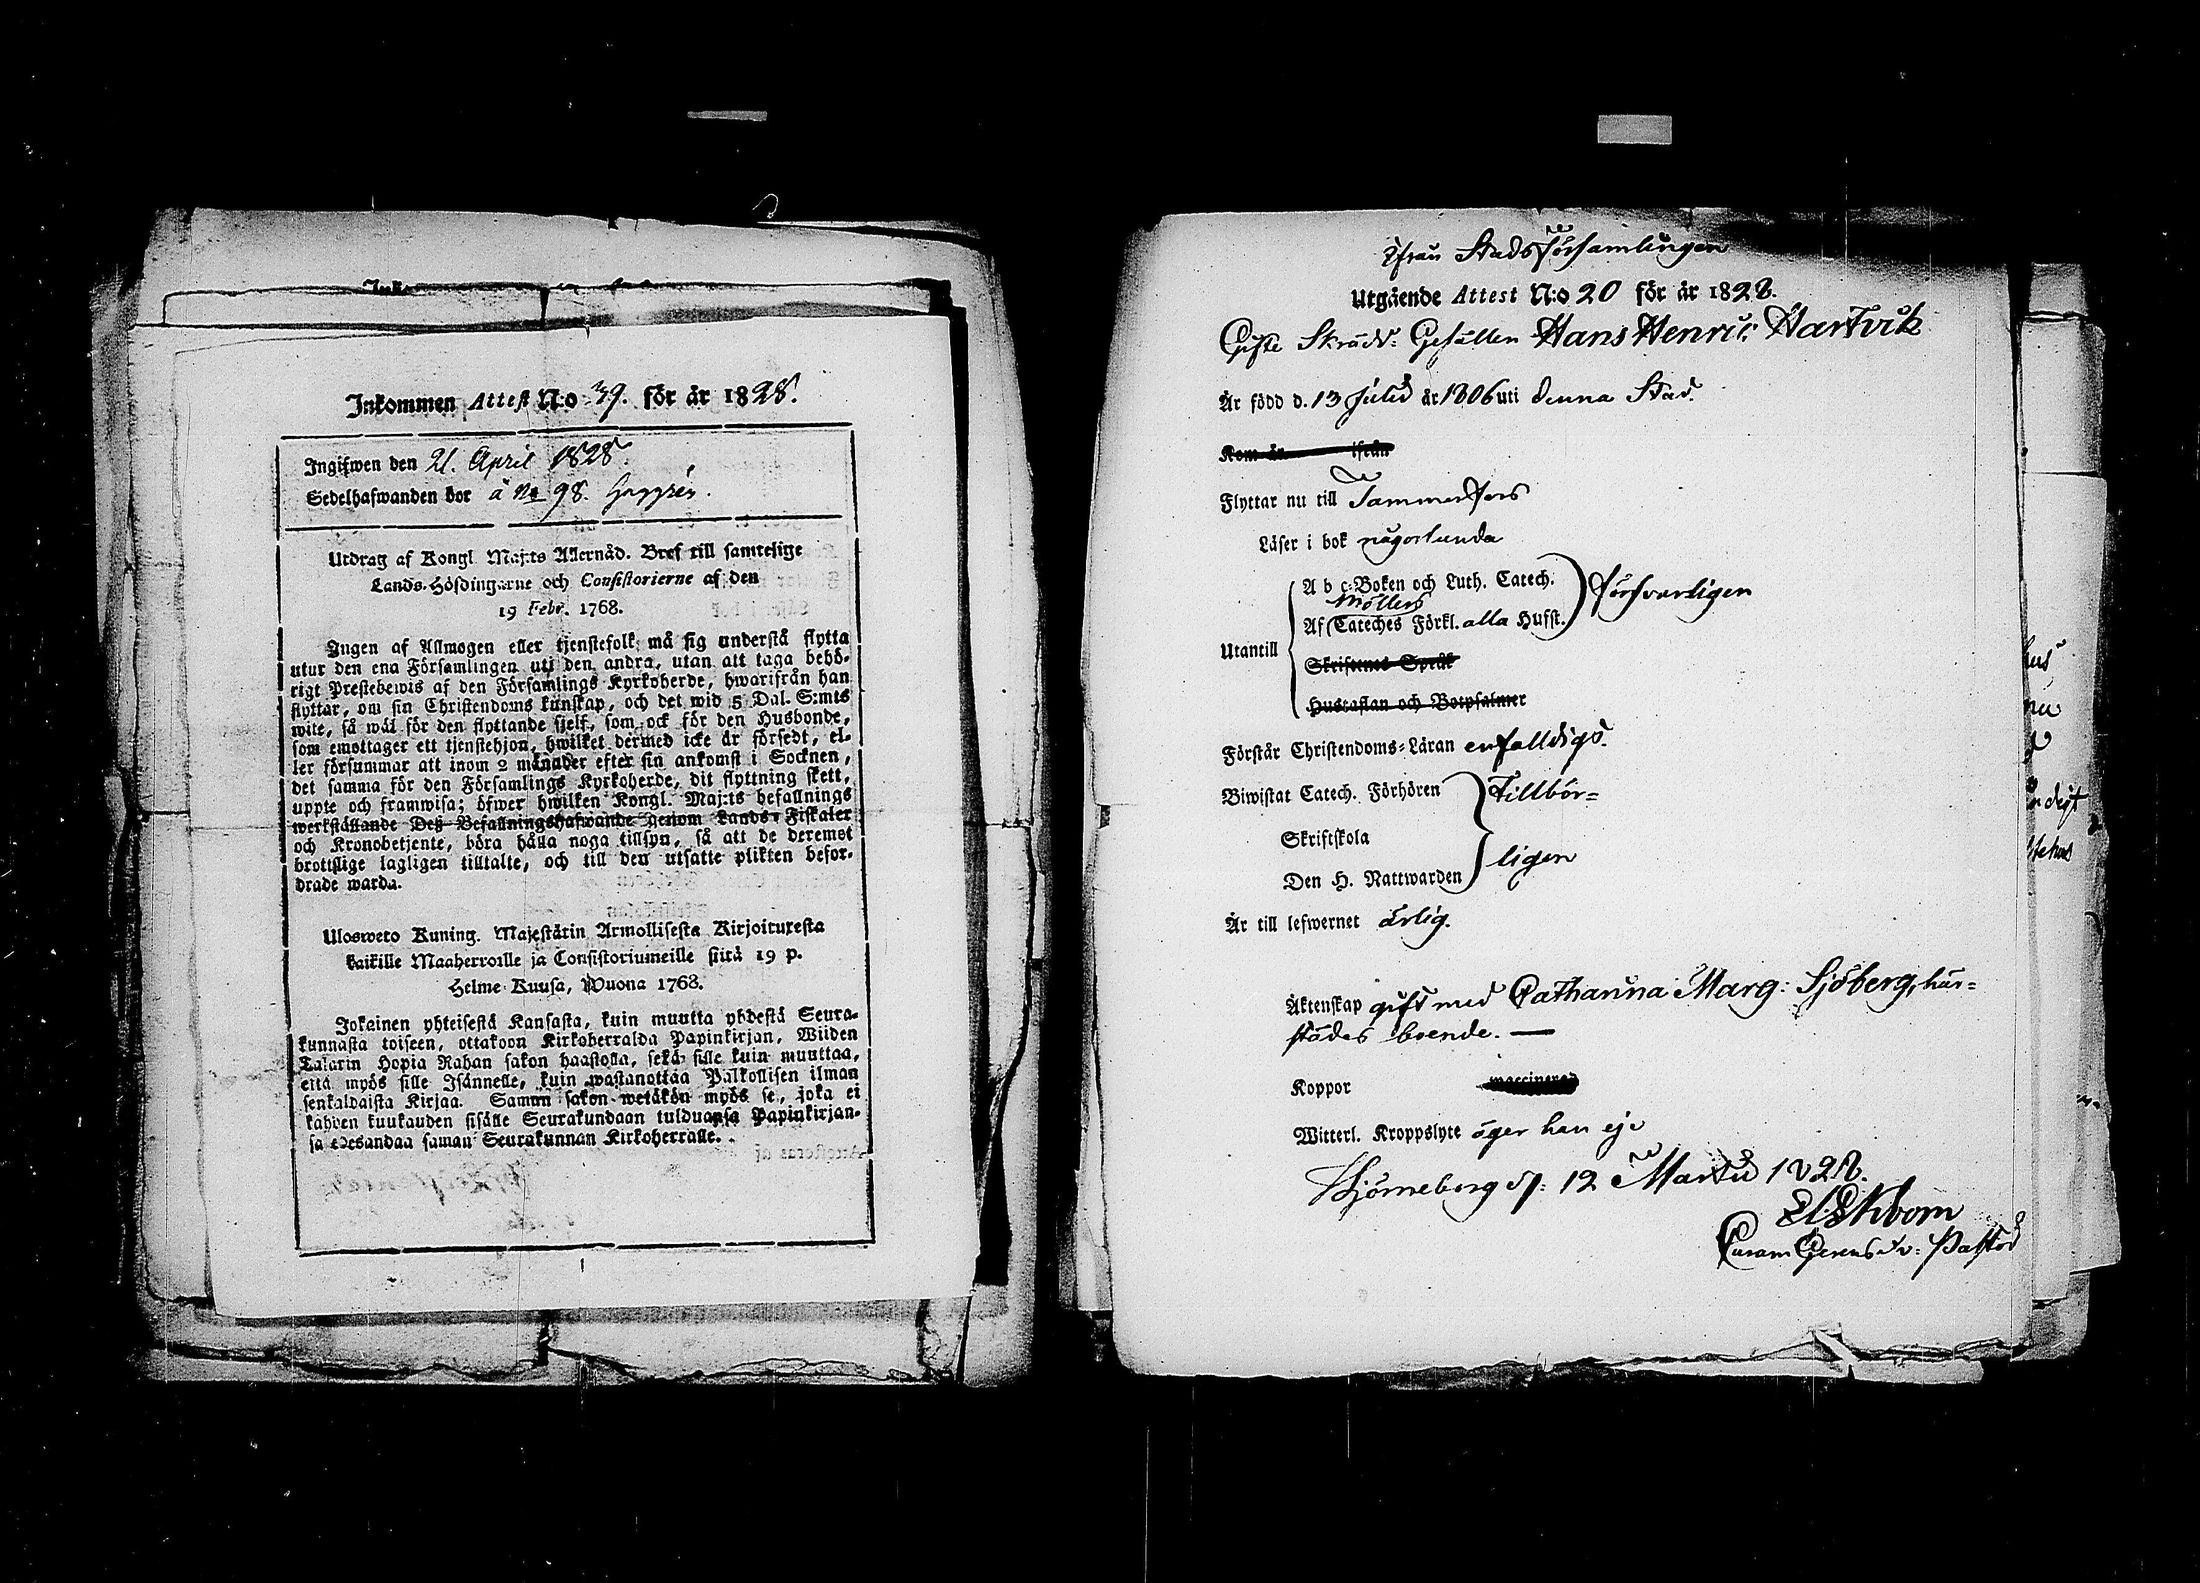 Inkommen Attest N:o 39. för år 1828.
Ingifwen den 21. April 1828.
Sedelhafwanden bor å No 98.
Utdrag af Kongl. Maj:ts Allernåd. Bref till samtelige
Lands-Höfdingarne och Consistorierne af den
19 Febr. 1768.
Ingen af Allmogen eller tjenstefolk må sig understå flytta
utur den ena Församlingen uti den andra, utan att taga behö-
rigt Prestebewis af den Församlings Kyrkoherde, hwarifrån han
flyttar, om sin Christendoms kunskap, och det wid 5 Dal. S:mts
wite, så wäl för den flyttande sjelf, som ock för den Husbonde,
som emottager ett tjenstehjon, hwilket dermed icke är försedt, el-
ler försummar att inom 2 månader efter sin ankomst i Socknen,
det samma för den Församlings Kyrkoherde, dit flyttning skett,
uppte och framwisa; öfwer hwilken Kongl. Maj:ts befallnings
werkställande Deß Befallningshafwande genom Lands-Fiskaler
och Kronobetjente, böra hålla noga tillsyn, så att de deremot
brottslige lagligen tilltalte, och till den utsatte plikten befor-
drade warda.
Ulosweto Kuning. Majestätin Armollisesta Kirjoituresta
kaikille Maaherroille ja Consistoriumeille siitä 19 p.
Helme-Kuusa, Wuona 1768.
Jokainen yhteisestä Kansasta, kuin muutta yhdestä Seura-
kunnasta toiseen, ottakoon Kirkoherralda Papinkirjan, Wiiden
Talarin Hopia Rahan sakon haastolla, sekä sille kuin muuttaa,
että myös sille Isännelle, kuin wastanottaa Palkollisen ilman
senkaldaista Kirjaa. Saman sakon wetäkön myös se, joka ei
kahden kuukauden sisälle Seurakundaan tulduansa Papinkirjan-
sa edesandaa saman Seurakunnan Kirkoherralle.
Ifrån Stadsförsamlingen
Utgående Attest N:o 20 för år 1828.
Gifte Skrädd: Gesällen Hans Henric Hartvik
Är född d. 13 Julii år 1806 uti denna Stad.
Kom år ifrån
Flyttar nu till Tammerfors
Läser i bok någorlunda
A b c-Boken och Luth. Catech.
Möllers
Af Cateches Förkl. alla Hufst. försvarligen
Utantill
Skriftenes Språk
Hustaflan och Botpsalmer
Förstår Christendoms-Läran enfalldigt.
Biwistat Catech. Förhören Tillbör=
Skriftskola
Den H. Nattwarden ligen
Är till lefwernet ärlig.
Äktenskap gift med Catharina Marg: Sjöberg, här=
städes boende. —
Koppor vaccinerad
Witterl. Kroppslyte äger han ej
Björneborg d: 12 Martii 1828.
Curam Gerens